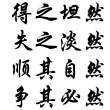 得之坦然
失之淡然
顺其自然
争其必然